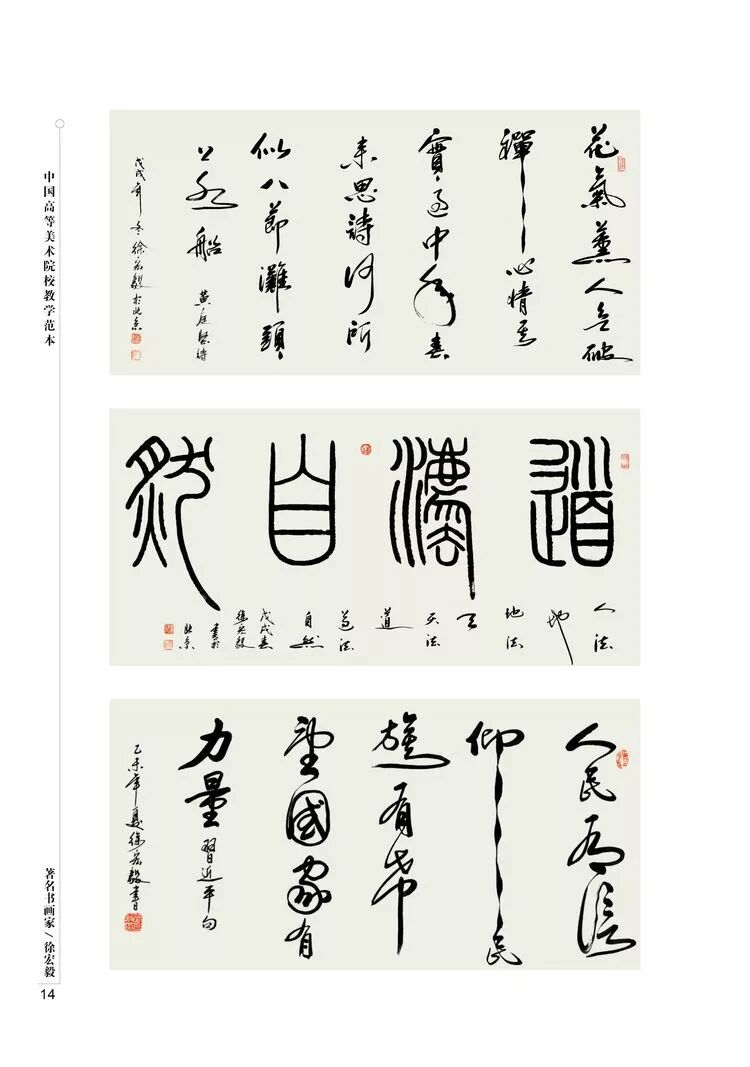 中国高等美术院校教学范本
花氣薰人欲破
禪心情其
實過中年春
來思詩何所
似八節灘頭
上水船 黃庭堅詩
戊戌年冬徐宏毅於北京
道灋自然
人法
地
地法
天
天法
道
道法
自然
戊戌春
徐宏毅
書於
北京
人民有信
仰民
族有希
望國家有
力量 習近平句
乙未年夏徐宏毅書
著名书画家/徐宏毅
14